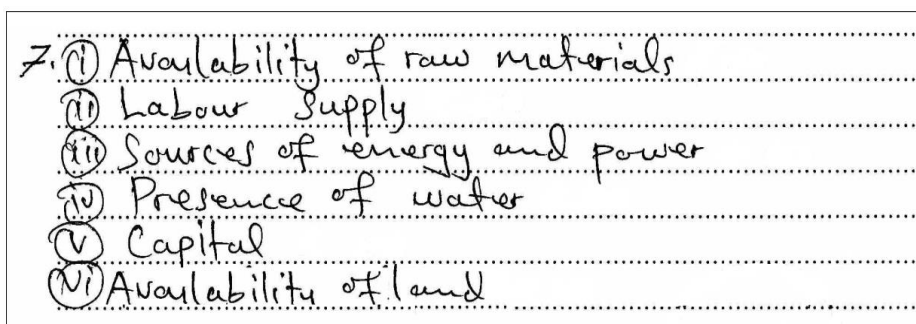 7. (i) Availability of raw materials
(ii) Labour supply
(iii) Sources of energy and power
(iv) Presence of water
(v) Capital
(vi) Availability of land